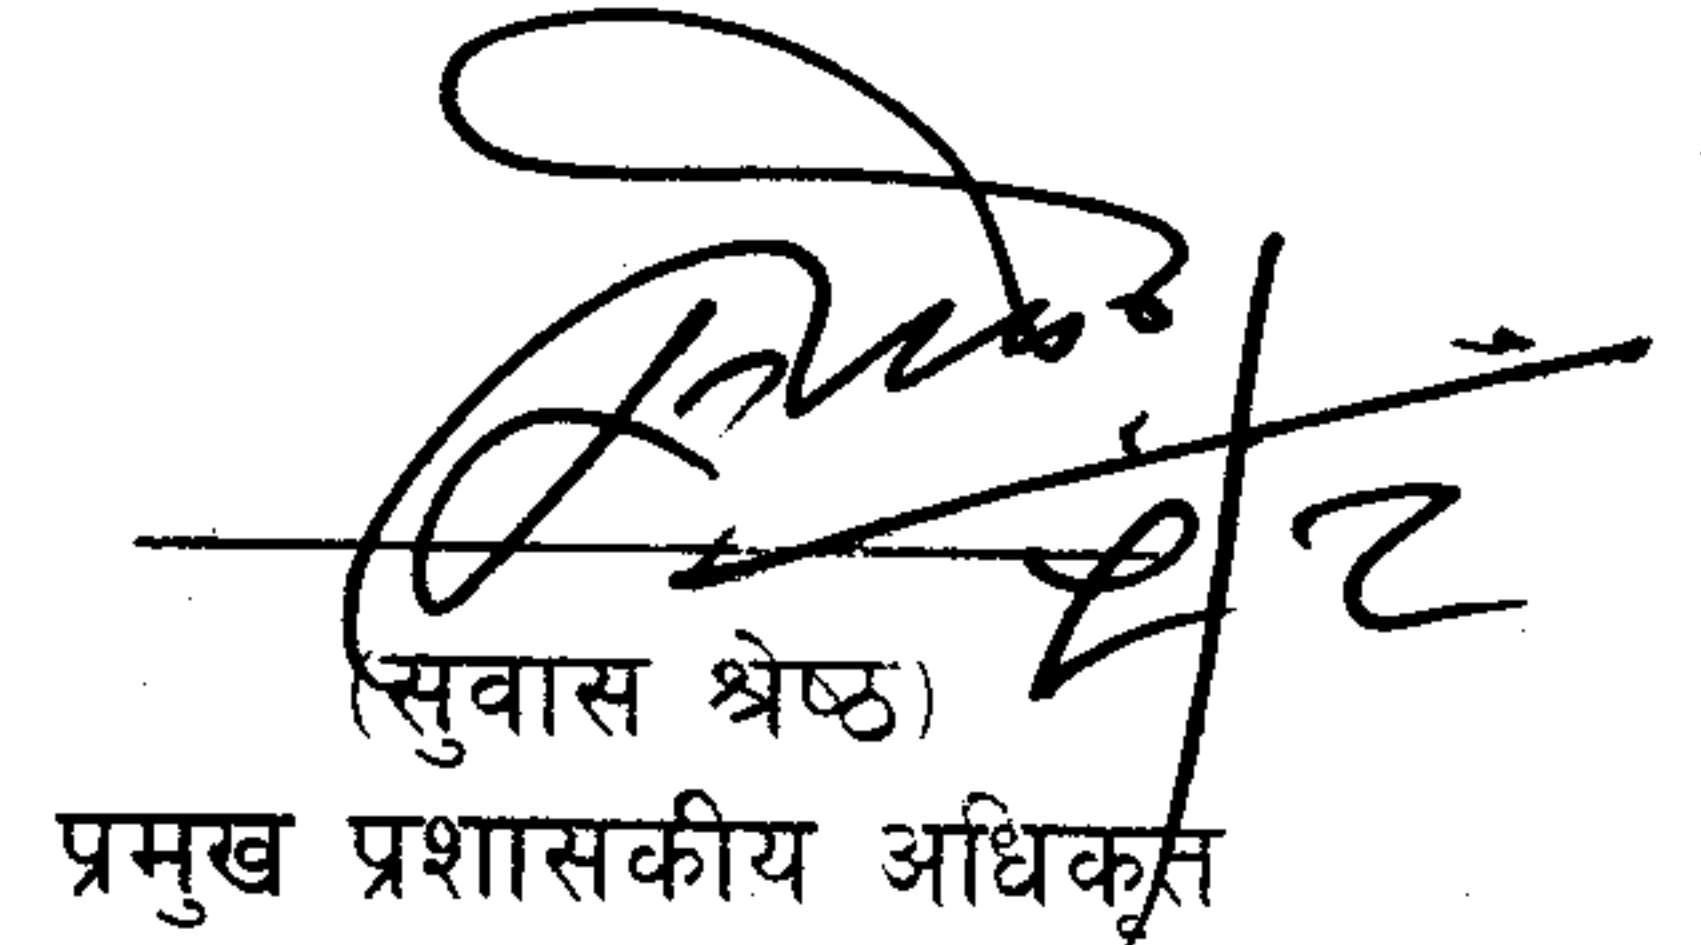 (सुवास श्रेष्ठ)
प्रमुख प्रशासकीय अधिकृत